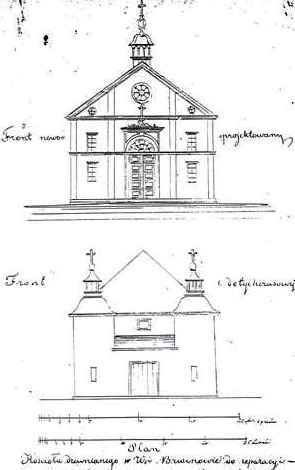 Front nowo projektowany
Front dotychczasowy
Plan
Kościoła drewnianego w Wsi do reparacyi